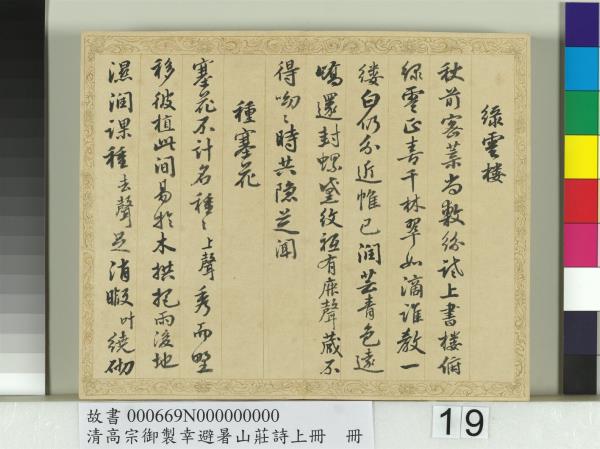 綠雲樓
秋前客葉尚敷紛試上書樓俯
綠雲正喜千林翠如滴誰教一
縷白仍分近帷已潤芸青色遠
嶠還封螺黛紋祗有鹿聲藏不
得呦〻時共隱芝聞
種塞花
塞花不計名種〻上聲秀而野
移彼植此間易於木拱把雨後地
濕潤課種去聲足消暇叶繞砌
故書 000669N000000000
清高宗御製幸避暑山莊詩上冊 冊
19